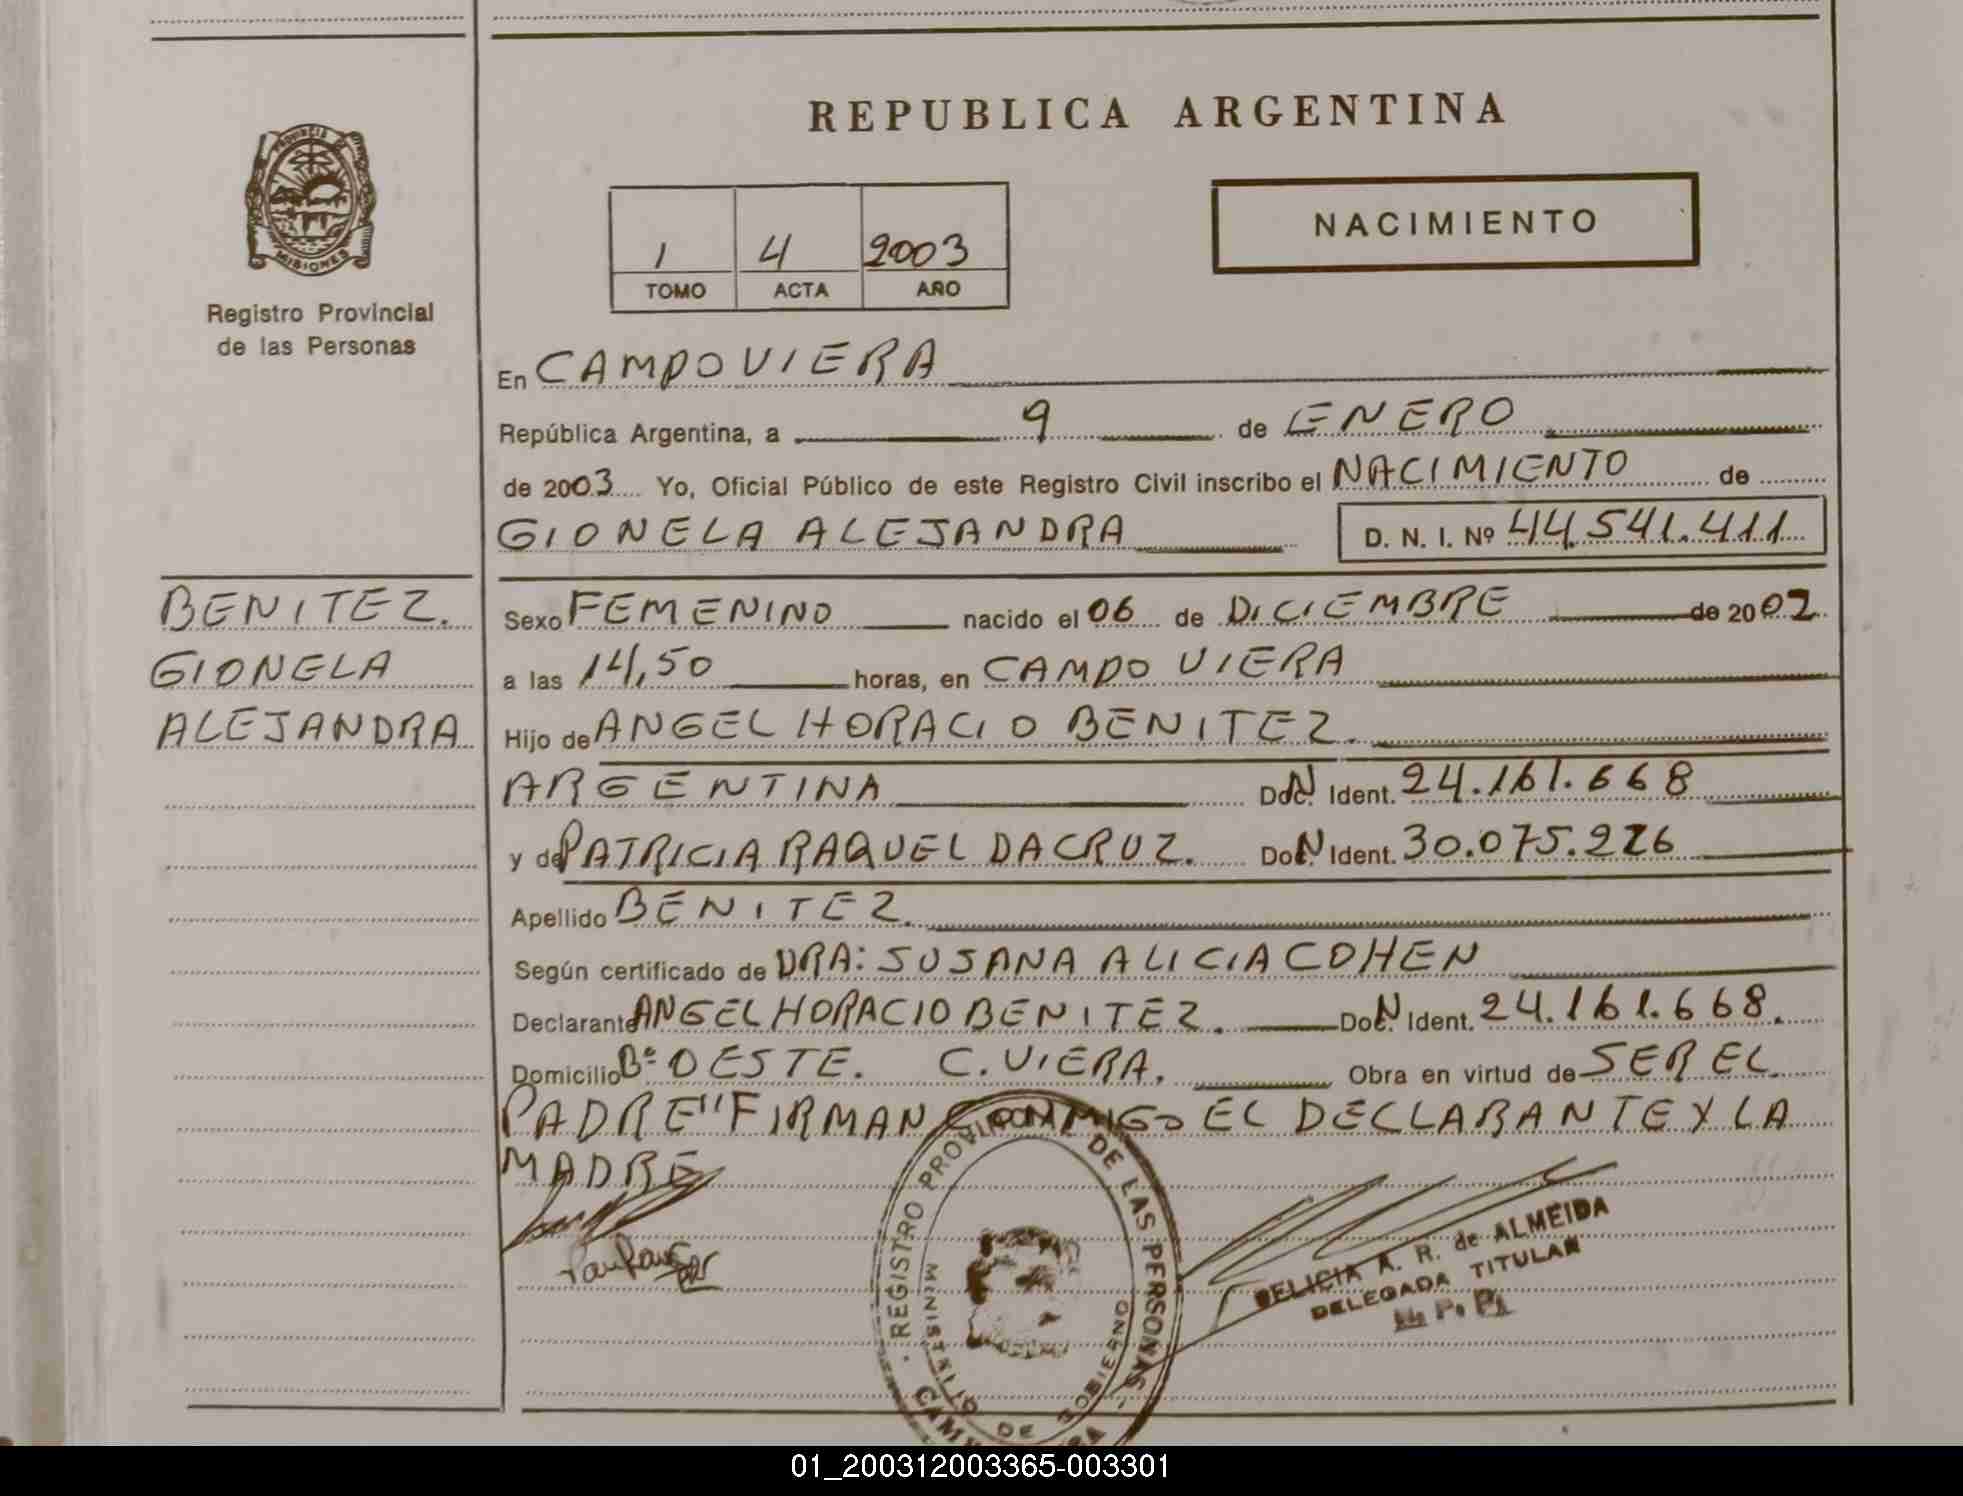 REPUBLICA ARGENTINA
PROVINCIA DE
MISIONES
Registro Provincial
de las Personas
1 4 2003
TOMO ACTA AÑO
NACIMIENTO
En CAMPO VIERA
República Argentina, a 9 de ENERO
de 2003 Yo, Oficial Público de este Registro Civil inscribo el NACIMIENTO de
GIONELA ALEJANDRA D. N. I. Nº 44.541.411
BENITEZ.
GIONELA
ALEJANDRA
Sexo FEMENINO nacido el 06 de DICIEMBRE de 2002
a las 14,50 horas, en CAMPO VIERA
Hijo de ANGEL HORACIO BENITEZ.
ARGENTINA DocN. Ident. 24.161.668
y de PATRICIA RAQUEL DACRUZ. DocN. Ident. 30.075.226
Apellido BENITEZ.
Según certificado de DRA: SUSANA ALICIA COHEN
Declarante ANGEL HORACIO BENITEZ. DocN. Ident. 24.161.668.
Domicilio Bº OESTE. C. VIERA. Obra en virtud de SER EL
PADRE "FIRMAN CONMIGO EL DECLARANTE Y LA
MADRE
REGISTRO PROVINCIAL DE LAS PERSONAS
MINISTERIO DE GOBIERNO
A. R. de ALMEIDA
DELEGADA TITULAR
01_200312003365-003301